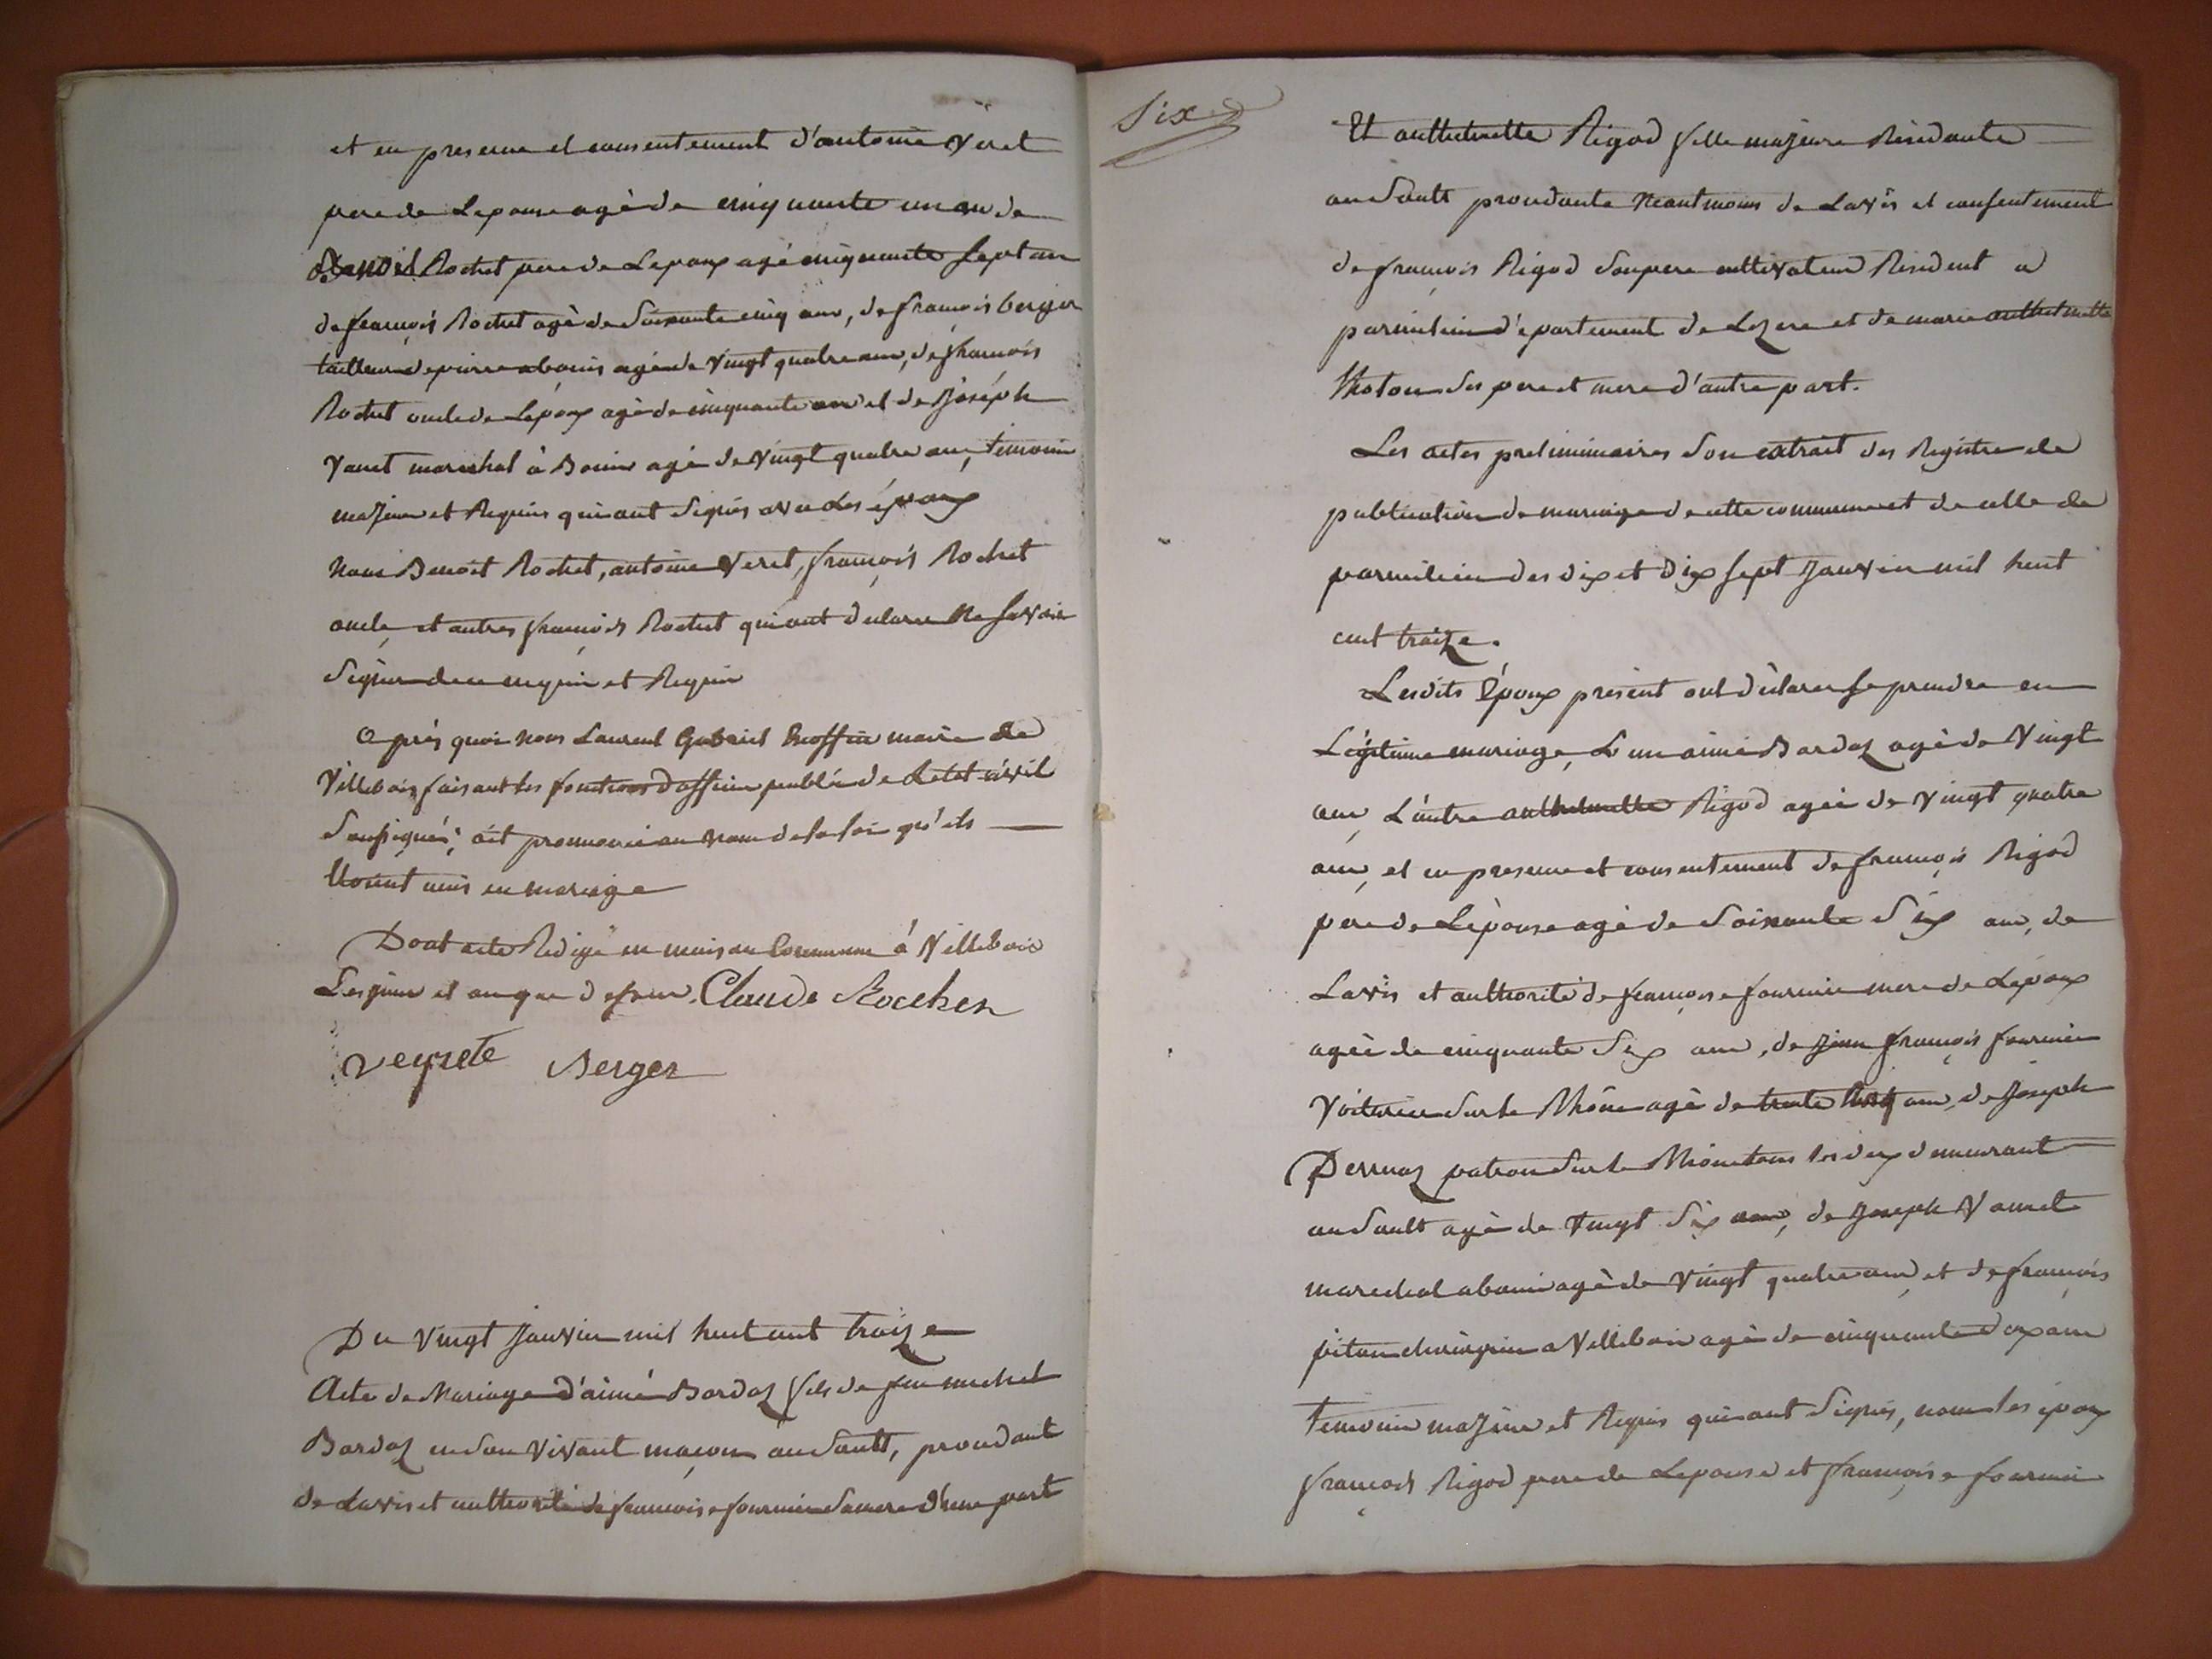 et en presence et consentement d'antoine Veret
pere de Lepouse agé de cinquante un an de
Benoit Rochet pere de Lepoux agé cinquante sept an
de françois Rochet agé de Soixante cinq ans, de françois berger
tailleur de pierre a bouis agé de vingt quatre ans, de françois
Rochet oncle de Lépoux agé de cinquante ans et de Joséph
Vauret marechal à Bouis agé de vingt quatre ans, temoins
majeurs et Requis qui ont Signés avec Les époux
Non Benoit Rochet, antoine Veret, françois Rochet
oncle, et autres françois Rochet qui ont declaré Ne Savoir
Signer de ce enquis et Requis
après quoi nous Laurent Gabriel maire de
Villebois faisant les fonctions d'officier public de Letat civil
Soussignés, ait prononcé au nom de la loi qu'ils
Etoient unis en mariage
Dont acte Redigé en maison Commune à Villebois
Les jour et an que dessus. Claude Rochet
veyrete Berger
Du vingt Janvier mil huit cent traize
Acte de Mariage d'aimé Bardaz fils de feu michel
Bardaz en Son vivant maçon au Sault, procedant
de Lavis et authorité de françoise fournier Sa mere d'une part
Six
Et anthelmette Rigod fille majeure Residante
au Sault procedante Neantmoins de Lavis et consentement
de françois Rigod Son pere cultivateur Resident a
parmilieu d'epartement de Lozere et de marie anthelmette
Moton Ses pere et mere d'autre part.
Les actes preliminaires Son extrait des Registre de
publication de mariage de cette commune et de celle de
parmilieu des dix et Dix sept Janvier mil huit
cent traize.
Lesdits Époux present ont déclarer se prendre en
Légitime mariage, L'un aimé Bardaz agé de Vingt
ans, L'autre anthelmette Rigod agée de vingt quatre
ans, et en presence et consentement de françois Rigod
pere de Lépouse agé de Soixante Six ans, de
Lavis et authorité de françoise fournier mere de Lépoux
agée de cinquante Six ans, de Jean françois fournier
Voiturier Sur le Rhône agé de trente ans, de Joseph
Derruaz patron Sur le Rhône tous les deux demeurant
au Sault agé de vingt Six ans, de Joseph Vauret
marechal a bouis agé de vingt quatre ans, et de françois
piton chirurgien a Villebois agé de cinquante deux ans
temoins majeurs et Requis qui ont Signés, non les époux
françois Rigod pere de Lepouse et françoise fournier